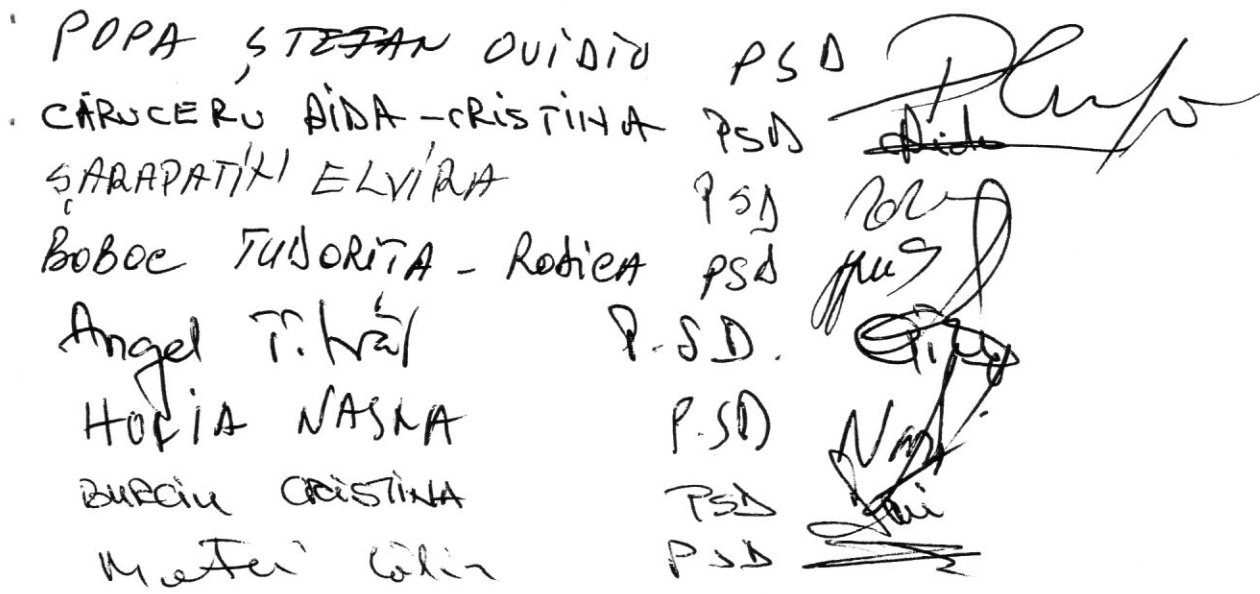 POPA ȘTEFAN OVIDIU PSD
CĂRUCERU AIDA-CRISTINA PSD
ȘARAPATIN ELVIRA PSD
BOBOC TUDORIȚA - RODICA PSD
Angel Tîlvăr P.S.D.
HORIA NASRA P.SD
BURCIU CRISTINA PSD
Matei Călin PSD